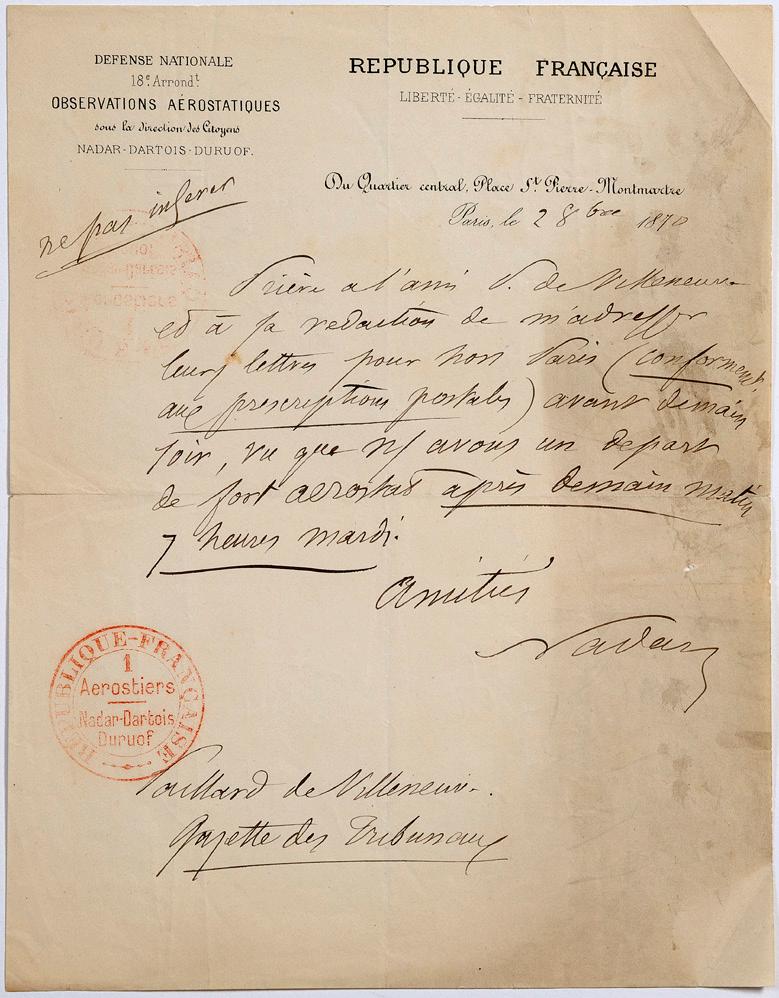 DEFENSE NATIONALE
18e Arrondt
OBSERVATIONS AÉROSTATIQUES
sous la direction des Citoyens
NADAR-DARTOIS-DURUOF.
REPUBLIQUE FRANÇAISE
LIBERTÉ - ÉGALITÉ - FRATERNITÉ
Du Quartier central, Place St Pierre-Montmartre
Paris, le 2 8bre 1870
ne pas inserer
Prière a l'ami V. de Villeneuve
et à sa redaction de m'adresser
leurs lettres pour hors Paris (conformemt
aux prescriptions postales) avant demain
soir, vu que ns avons un depart
de fort aerostat après demain matin
7 heures mardi.
Amitiés
Nadar
REPUBLIQUE-FRANÇAISE
1
Aerostiers
Nadar-Dartois
Duruof
de Villeneuve.
Gazette des Tribunaux